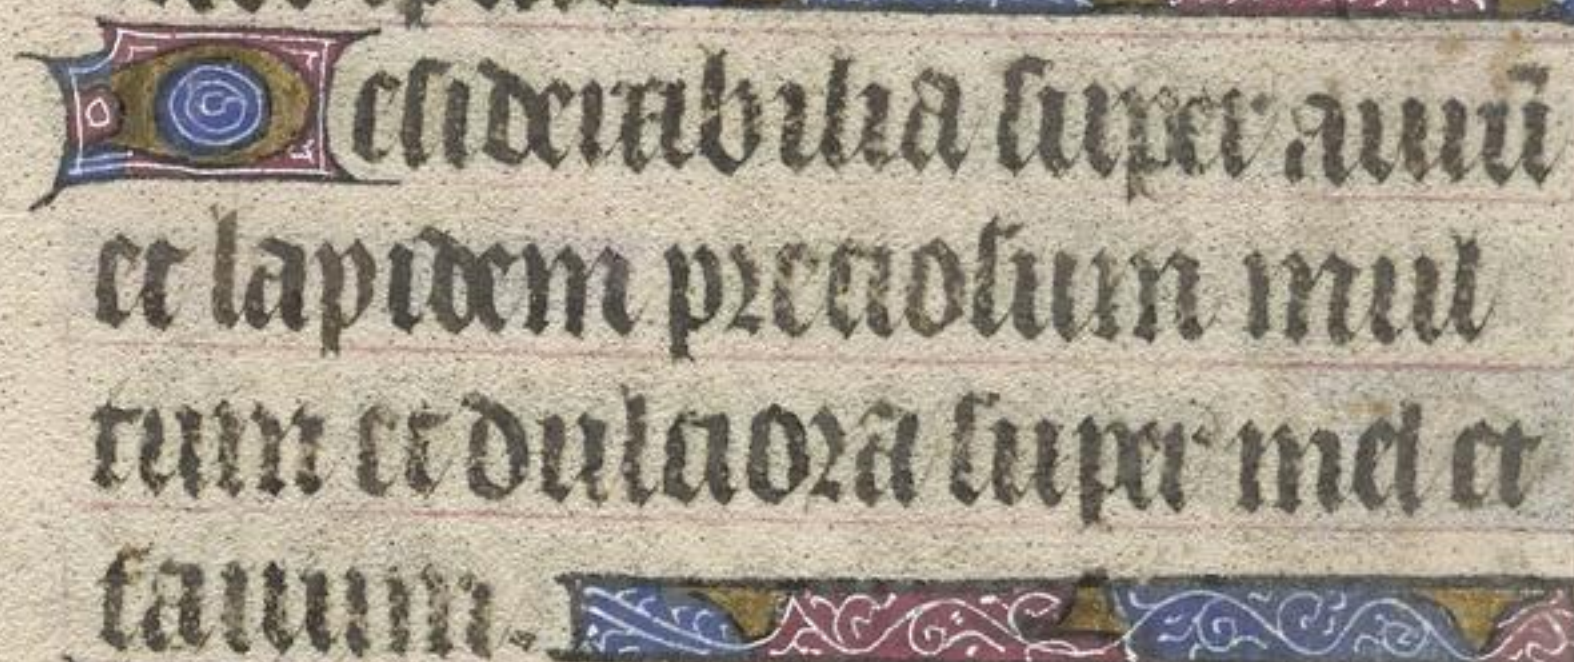 Desiderabilia super aurū
et lapidem preciosum mul
tum et dulciora super mel et
fauum.